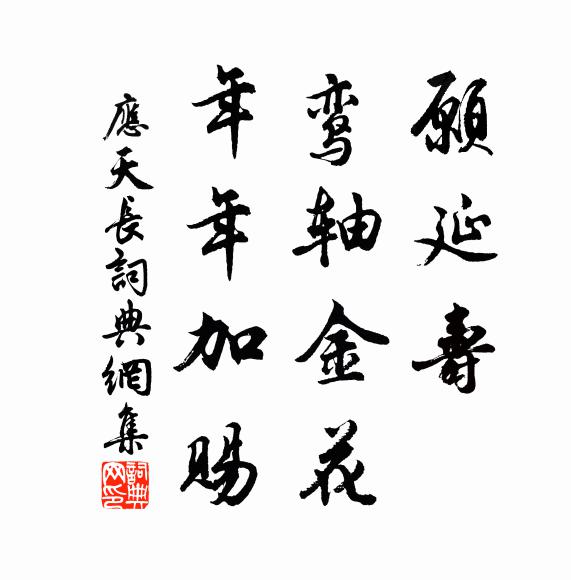 願延壽
鸾轴金花
年年加賜
應天長詞典網集
詞典網印